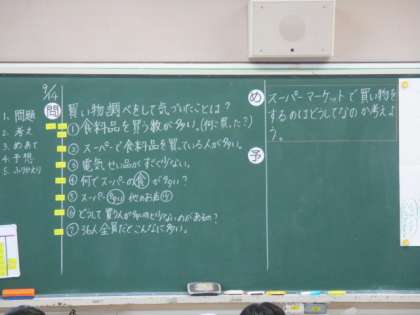 9/14
1. 問題
2. 考え
3. めあて
4. 予想
5. ふりかえり
問 買い物調べをして気づいたことは?
① 食料品を買う数が多い。(何に買った?)
② スーパーで食料品を買っている人が多い。
③ 電気せい品がすごく少ない。
④ 何でスーパーの食が多い?
⑤ スーパー多い 他のお店少
⑥ どうして買う人が多いのと少ないのがあるの?
⑦ 36人全員だとこんなに多い。
め スーパーマーケットで買い物を
するのはどうしてなのか考えよ
う。
予